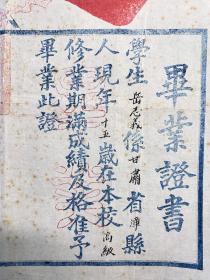 畢業證書
學生岳志義係甘肅省漳縣
人現年十五歲在本校高級
修業期滿成績及格准予
畢業此證